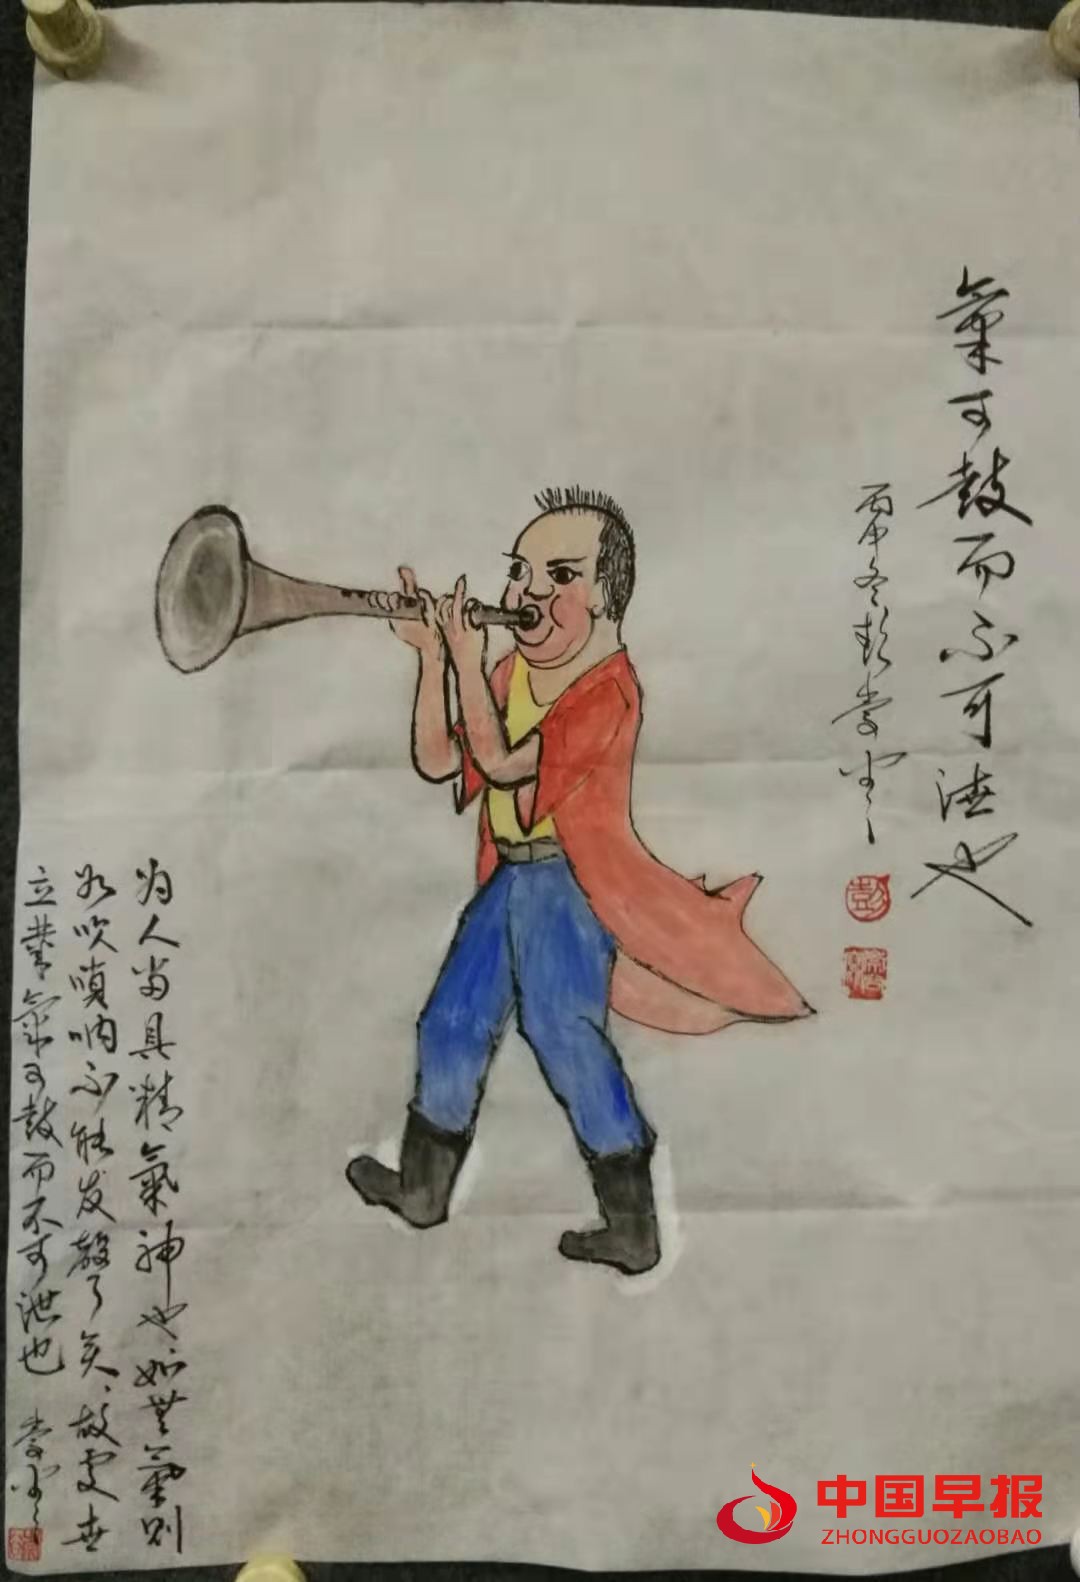 氣可鼓而不可洩也
丙申冬彭
彭
为人当具精氣神也如無氣则
如吹嗩呐不能发聲了矣、故處世
立業氣可鼓而不可泄也
中国早报
ZHONGGUOZAOBAO